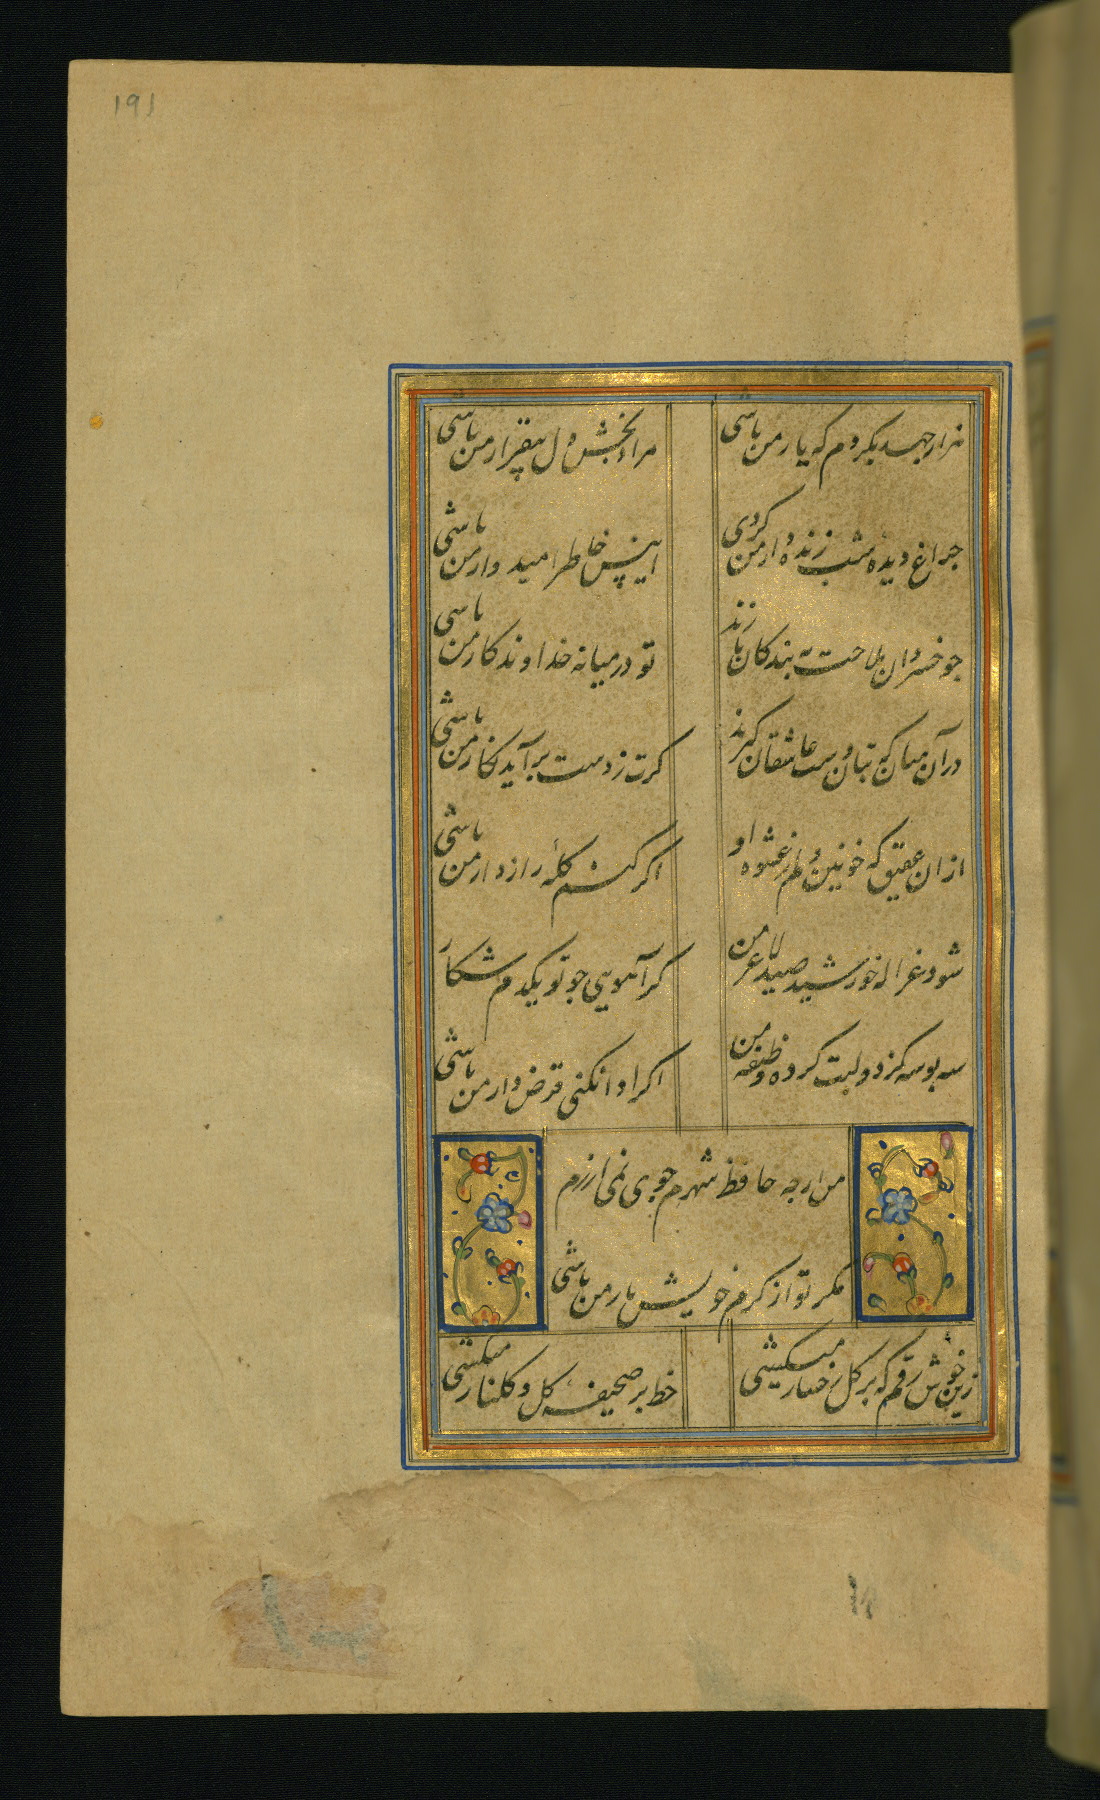 ۱۹۱
هزار جهد بکردم که یار من باشی
مراد بخش دل بیقرار من باشی
چراغ دیده شب زنده دار من کردی
انیس خاطر امیدوار من باشی
جو خسروان ملاحت ببندکان نازند
تو در میانه خداوندکار من باشی
در آن میان که بتان دست عاشقان کیرند
کرت ز دست برآید نکار من باشی
از ان عقیق که خونین دلم ز عشوه او
اکر کنم کلهٔ رازدار من باشی
شود غزاله خورشید صید لاغر من
کر آهویی جو تو یکدم شکار
سه بوسه کز دو لبت کرده وظیفه من
اکر ادا نکنی قرض دار من باشی
من ارجه حافظ شهرم جوی نمی ارزم
مکر تو از کرم خویش یار من باشی
زین خوش رقم که بر کل رخسار میکشی
خط بر صحیفهٔ کل و کلنار میکشی